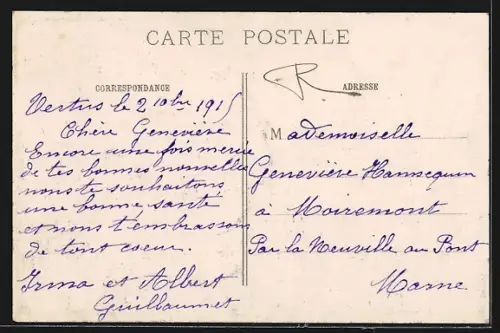 CARTE POSTALE
CORRESPONDANCE
ADRESSE
Vertus le 2 10bre 1915
Chère Geneviève
Encore une fois mercie
de tes bonnes nouvelles
nous te souhaitons
une bonne santé
et nous t'embrassons
de tout coeur.
Irma et Albert
Guillaumet
FR
Mademoiselle
Geneviève Hannequin
à Moiremont
Par la Neuville au Pont
Marne